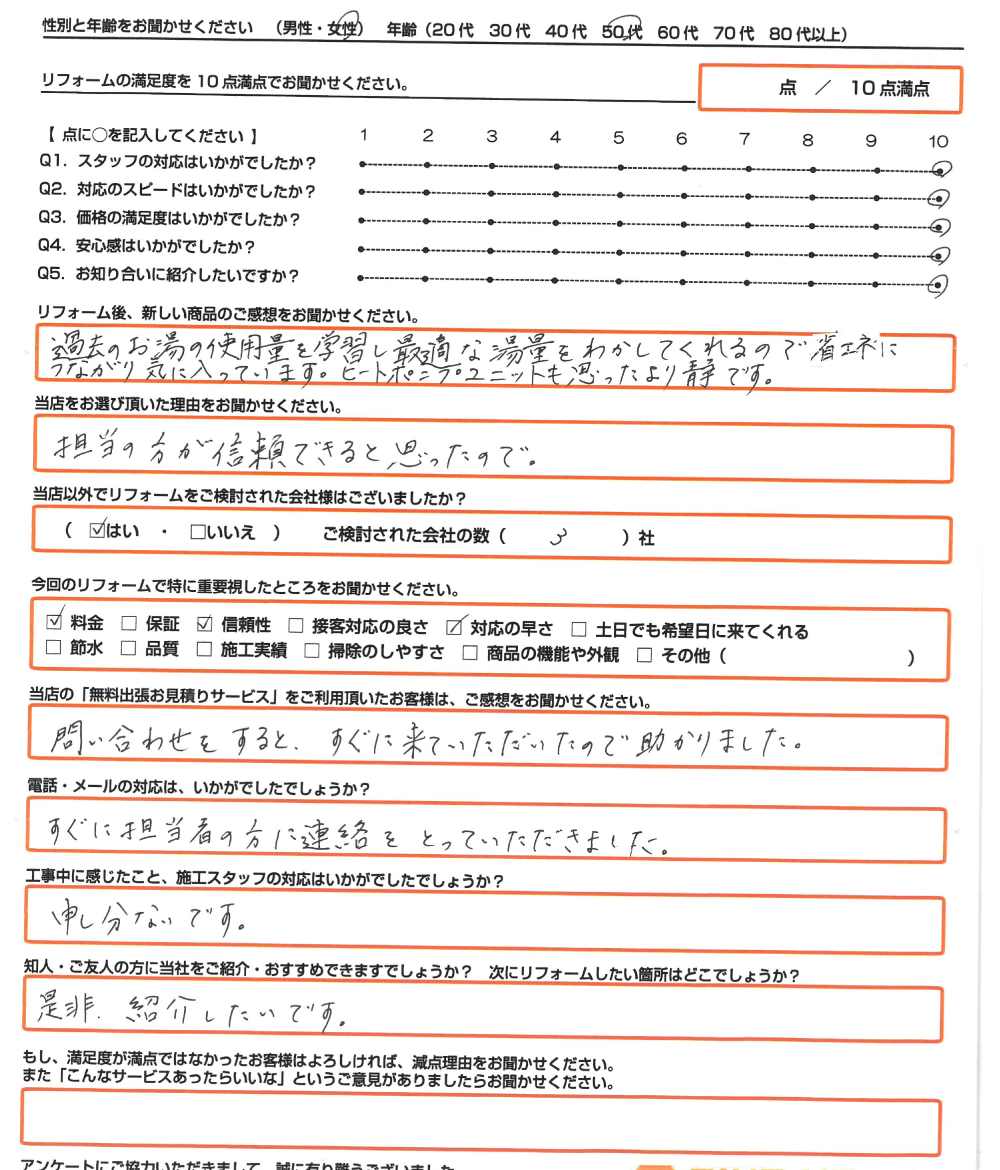 性別と年齢をお聞かせください （男性・女性） 年齢（20代 30代 40代 50代 60代 70代 80代以上）
リフォームの満足度を10点満点でお聞かせください。
点 ／ 10点満点
【 点に○を記入してください 】 1 2 3 4 5 6 7 8 9 10
Q1. スタッフの対応はいかがでしたか？
Q2. 対応のスピードはいかがでしたか？
Q3. 価格の満足度はいかがでしたか？
Q4. 安心感はいかがでしたか？
Q5. お知り合いに紹介したいですか？
リフォーム後、新しい商品のご感想をお聞かせください。
過去のお湯の使用量を学習し最適な湯量をわかしてくれるので省エネに
つながり気に入っています。ヒートポンプユニットも思ったより静です。
当店をお選び頂いた理由をお聞かせください。
担当の方が信頼できると思ったので。
当店以外でリフォームをご検討された会社様はございましたか？
（ ☑はい ・ □いいえ ） ご検討された会社の数（ 3 ）社
今回のリフォームで特に重要視したところをお聞かせください。
☑ 料金 □ 保証 ☑ 信頼性 □ 接客対応の良さ ☑ 対応の早さ □ 土日でも希望日に来てくれる
□ 節水 □ 品質 □ 施工実績 □ 掃除のしやすさ □ 商品の機能や外観 □ その他（ ）
当店の「無料出張お見積りサービス」をご利用頂いたお客様は、ご感想をお聞かせください。
問い合わせをすると、すぐに来ていただいたので助かりました。
電話・メールの対応は、いかがでしたでしょうか？
すぐに担当者の方に連絡をとっていただきました。
工事中に感じたこと、施工スタッフの対応はいかがでしたでしょうか？
申し分ないです。
知人・ご友人の方に当社をご紹介・おすすめできますでしょうか？ 次にリフォームしたい箇所はどこでしょうか？
是非、紹介したいです。
もし、満足度が満点ではなかったお客様はよろしければ、減点理由をお聞かせください。
また「こんなサービスあったらいいな」というご意見がありましたらお聞かせください。
アンケートにご協力いただきまして、誠に有り難うございました。